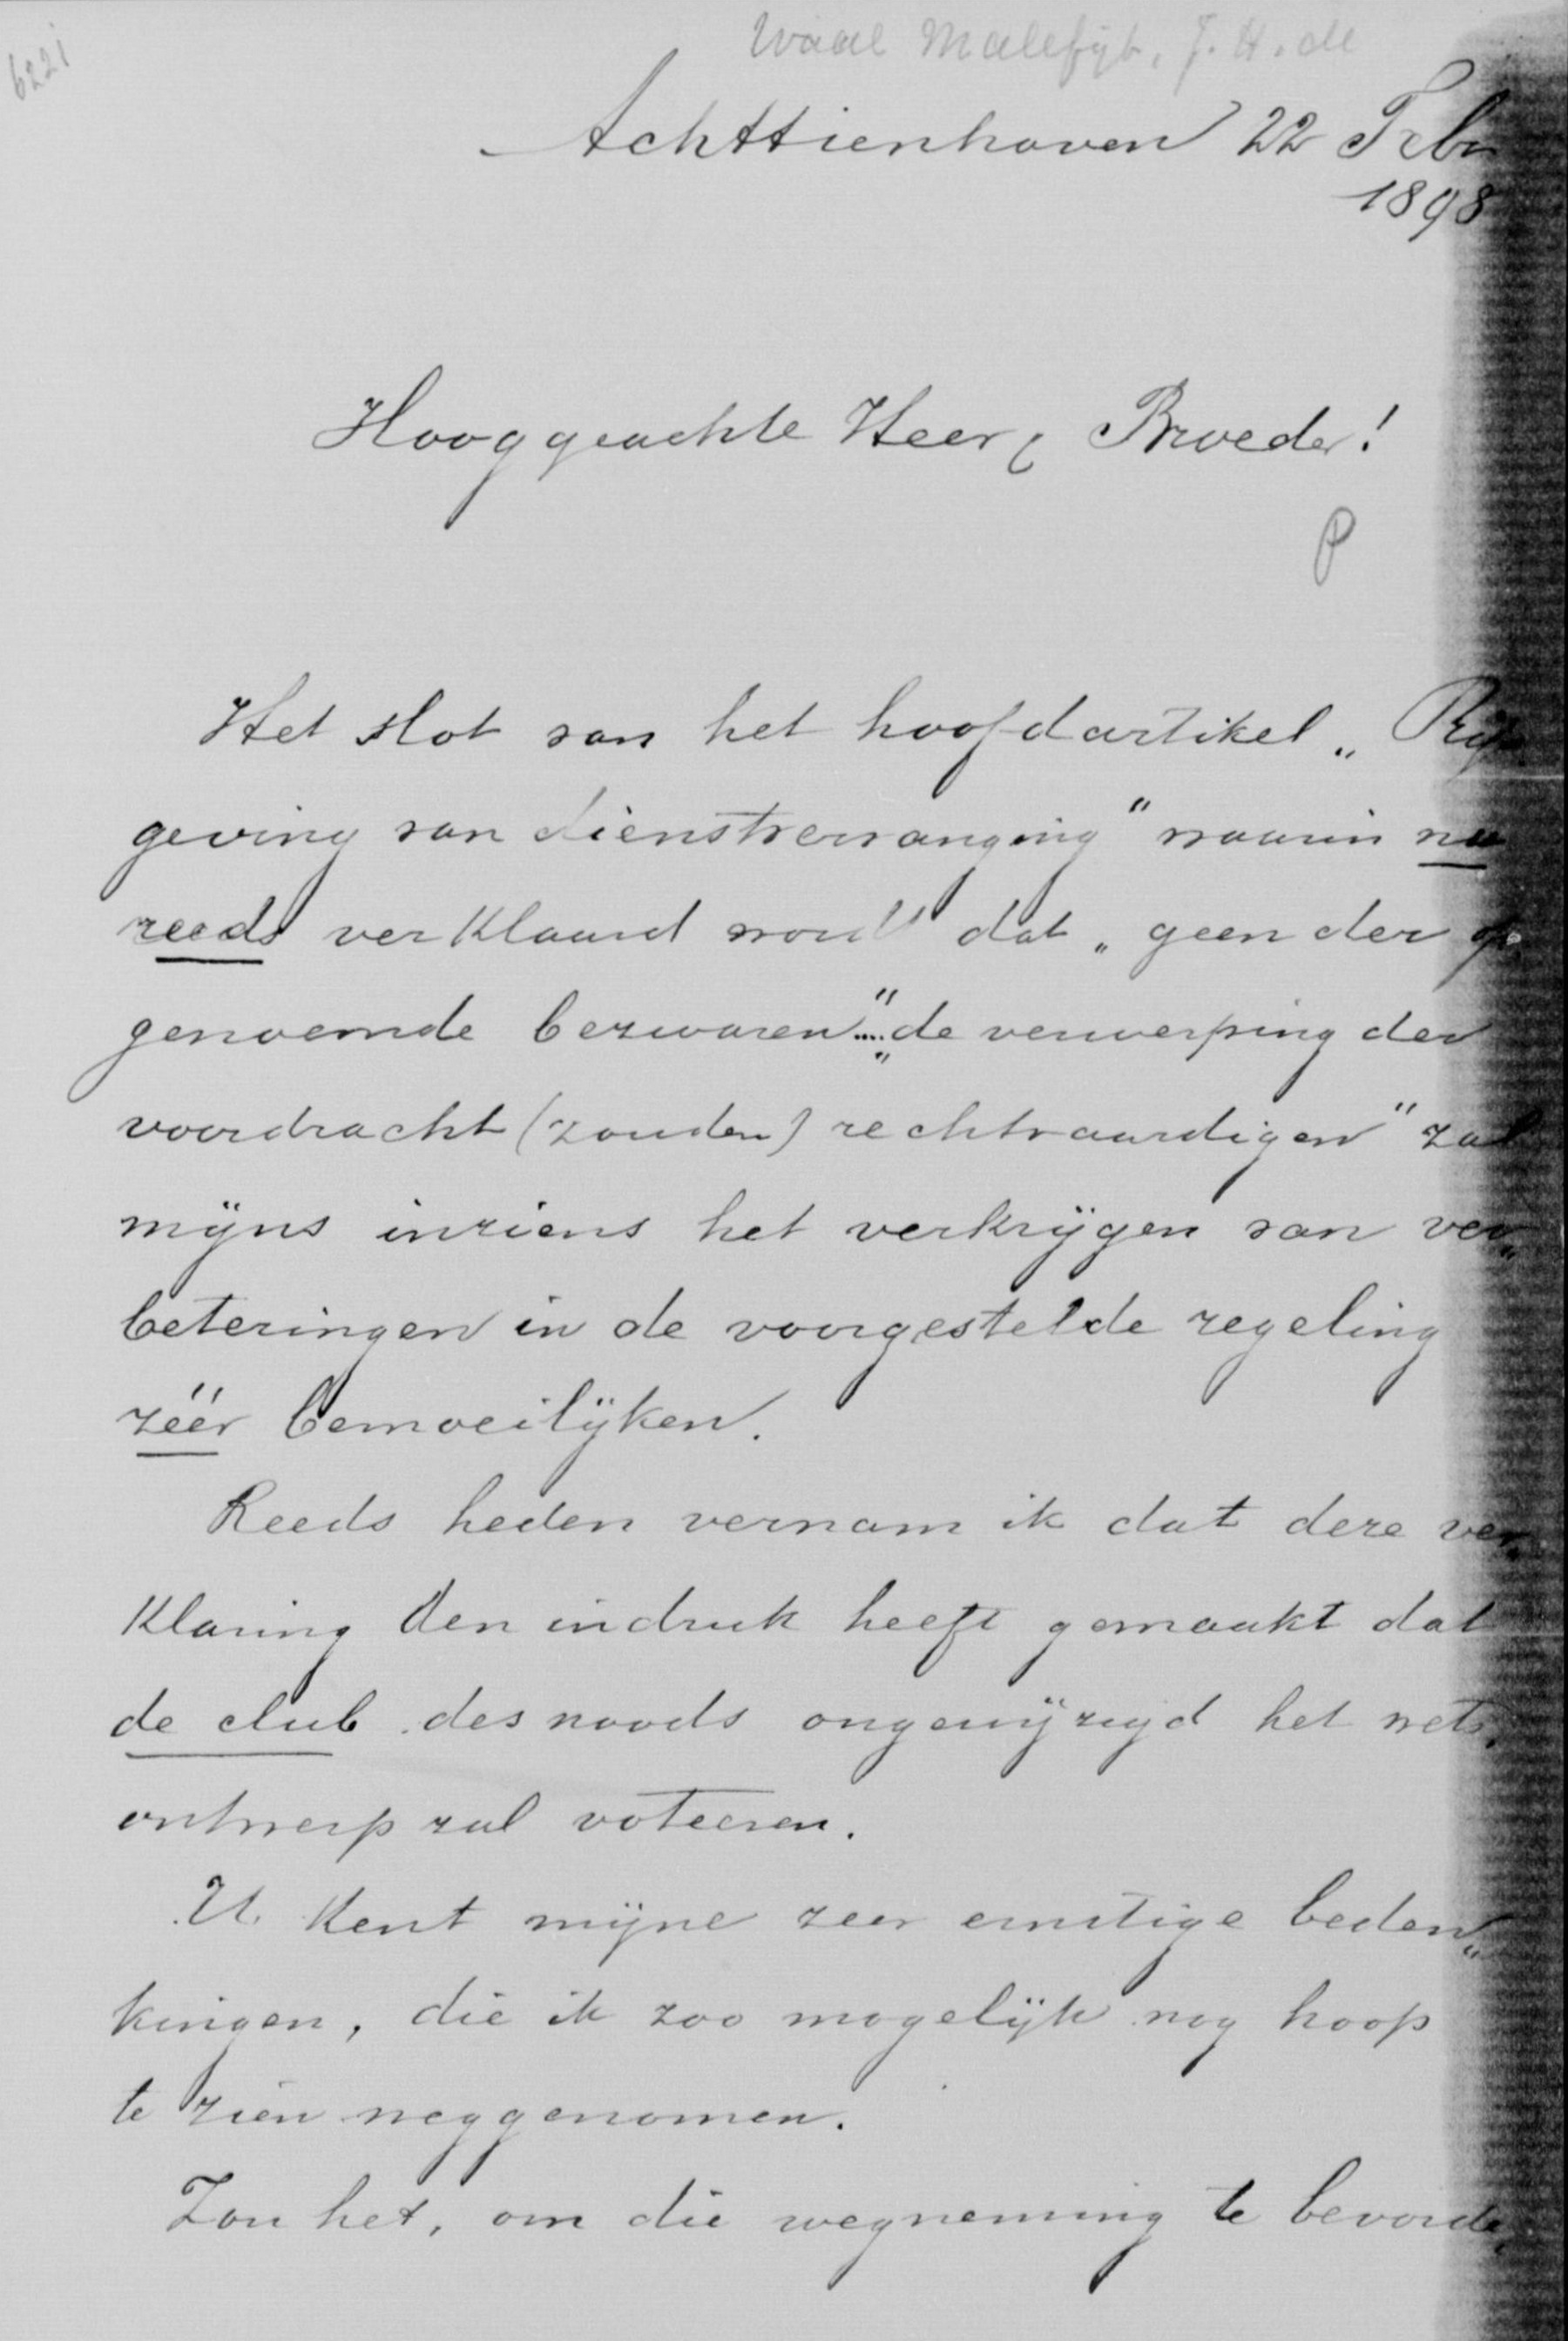 6221
Waal Malefijt, J. H. de
Achttienhoven 22 Febr
1898
Hooggeachte Heer & Broeder!
P
Het slot van het hoofdartikel „
geving van dienstvervanging" waarin nu
reeds verklaard wordt dat „geen der op
genoemde bezwaren".... „de verwerping der
voordracht (zouden) rechtvaardigen" zal
mijns inziens het verkrijgen van ver„
beteringen in de voorgestelde regeling
zéér bemoeilijken.
Reeds heden vernam ik dat deze ver„
klaring den indruk heeft gemaakt dat
de club desnoods ongewijzigd het wets„
ontwerp zal voteeren.
U kent mijne zeer ernstige beden„
kingen, die ik zoo mogelijk nog hoop
te zien weggenomen.
Zou het, om die wegneming te bevorde„